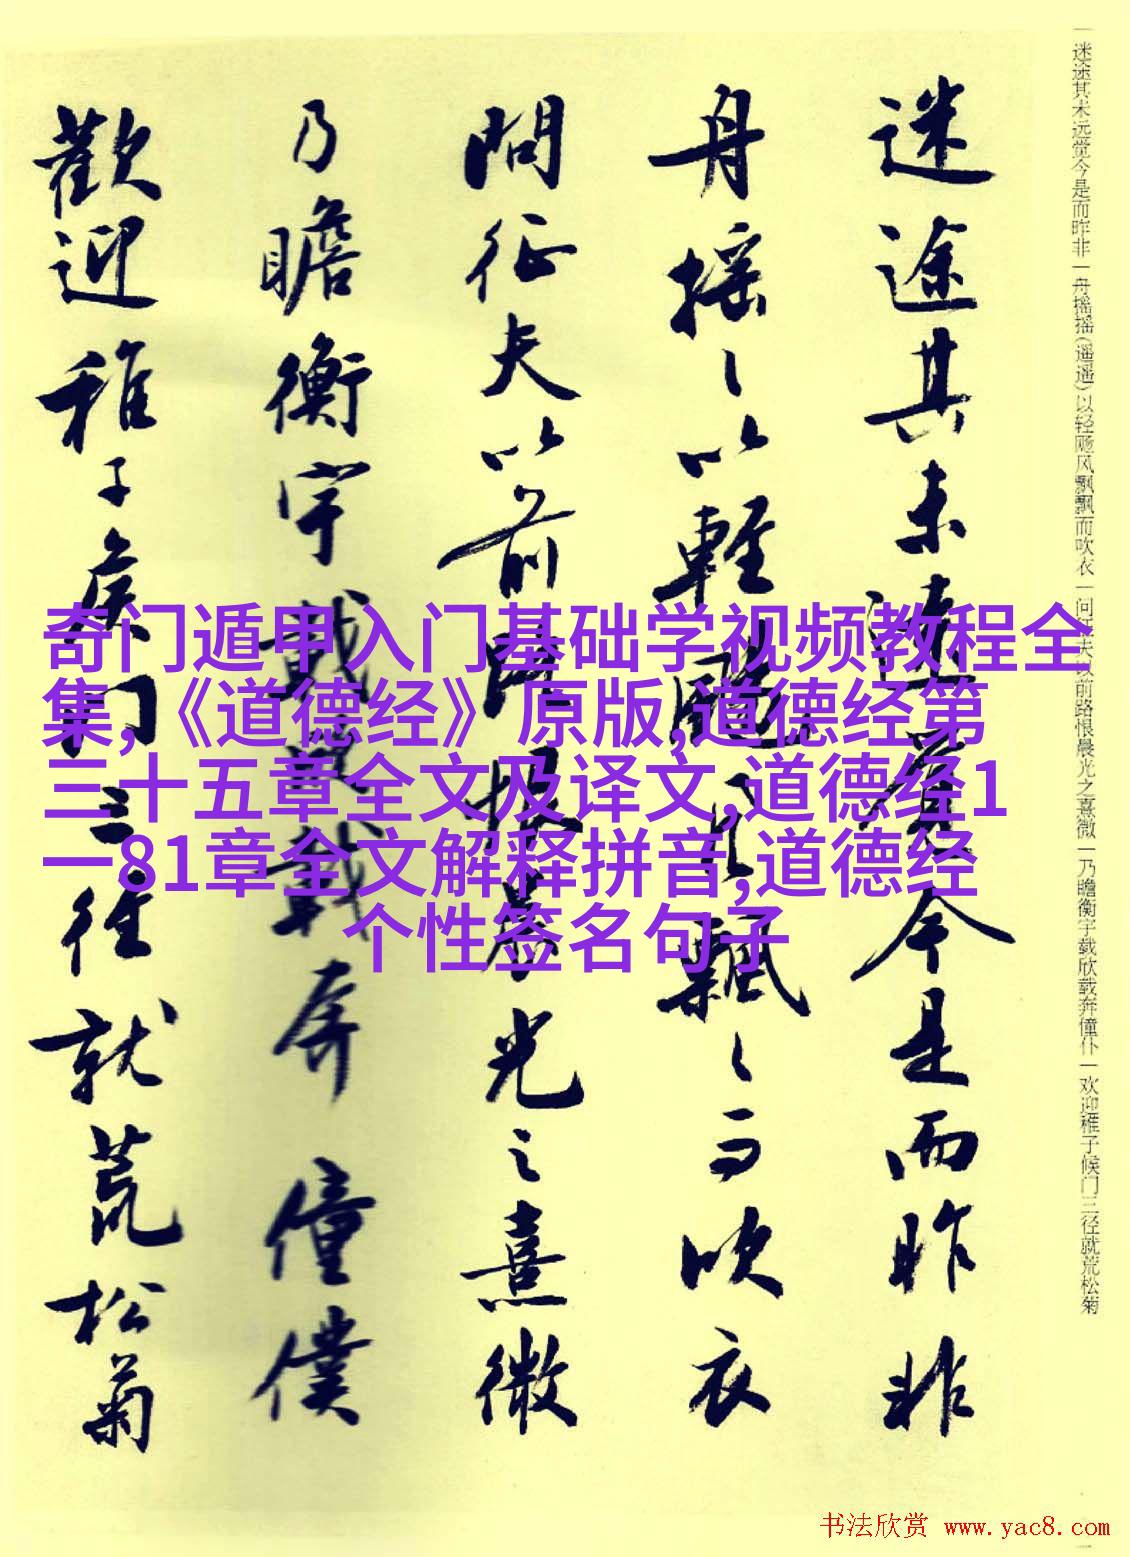 一迷途其未远觉今是而昨非一舟摇摇(遥遥)以轻飏风飘飘而吹衣一问征夫以前路恨晨光之熹微一乃瞻衡宇载欣载奔僮仆一欢迎稚子候门三径就荒松菊
迷途其未遠覺今是而昨非
舟摇〻以輕颺風飄〻而吹衣
問征夫以前路恨晨光之熹微
乃瞻衡宇載欣載奔僮僕
歡迎稚子候门三径就荒松菊
奇门遁甲入门基础学视频教程全
集,《道德经》原版,道德经第
三十五章全文及译文,道德经1
一81章全文解释拼音,道德经
个性签名句子
书法欣赏 www.yac8.com